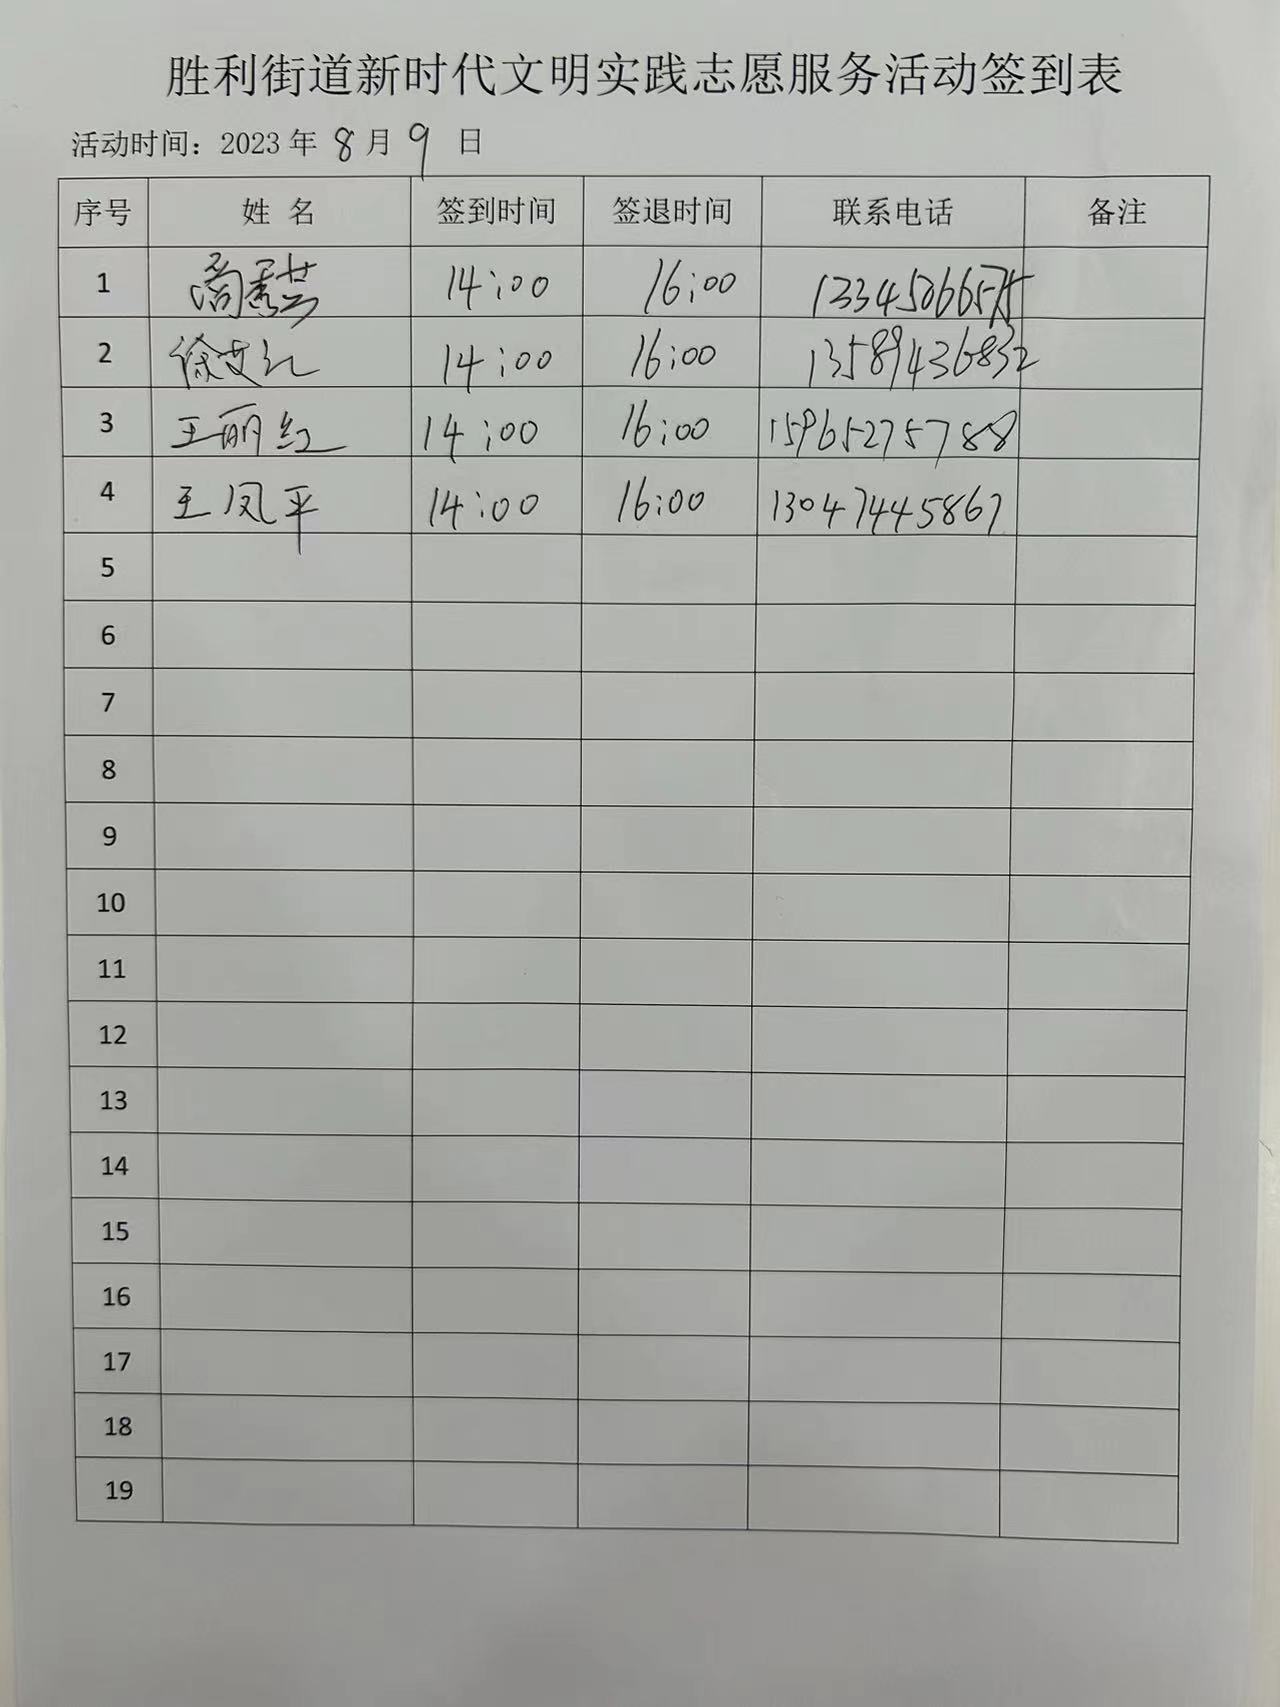 胜利街道新时代文明实践志愿服务活动签到表
活动时间：2023 年 8 月 9 日
序号 姓 名 签到时间 签退时间 联系电话 备注
1 14:00 16:00
2 徐艾红 14:00 16:00 13589436832
3 王丽红 14:00 16:00 15965275788
4 王凤平 14:00 16:00 13047445867
5
6
7
8
9
10
11
12
13
14
15
16
17
18
19